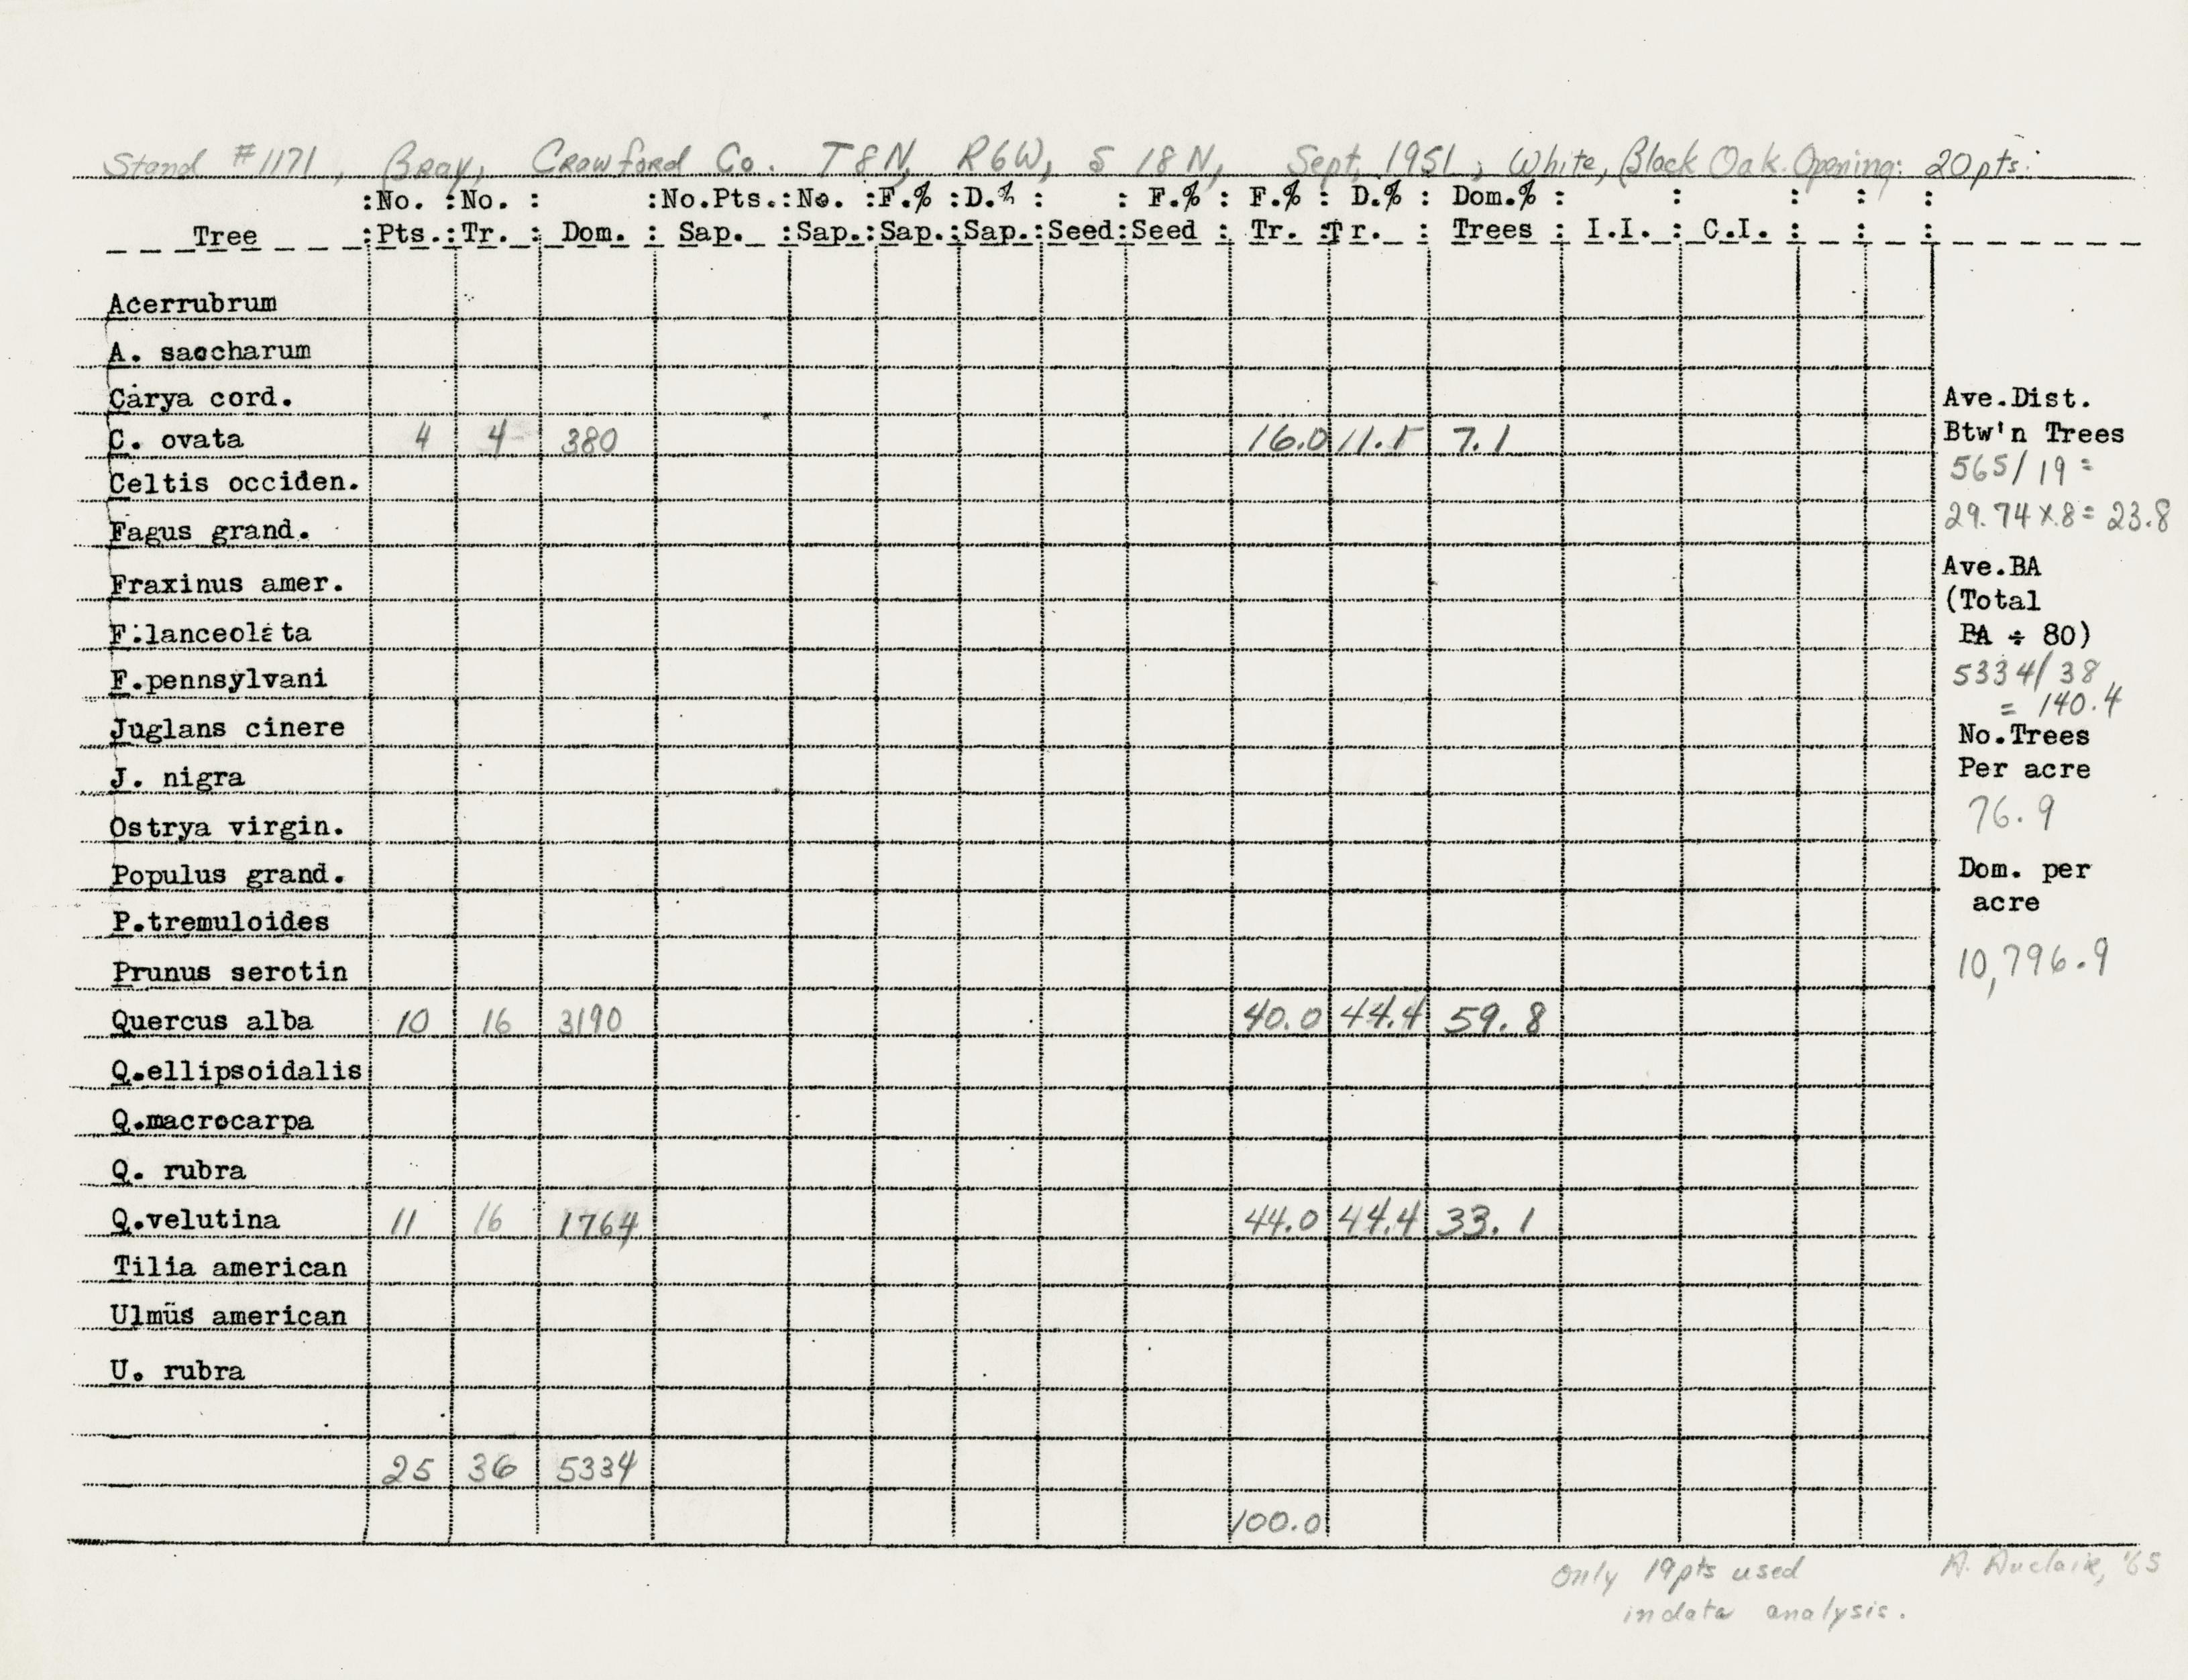 Stand #1171, Bray, Crawford Co. T8N, R6W, S 18N, Sept, 1951, White, Black Oak Opening: 20pts.
:No. :No. : :No.Pts.:No. :F.% :D.% : : F.% : F.% : D.% : Dom.% : : : : :
Tree :Pts.:Tr. : Dom. : Sap. :Sap.:Sap.:Sap.:Seed:Seed : Tr. :Tr. : Trees : I.I. : C.I. : : :
Acerrubrum
A. saccharum
Carya cord.
Ave.Dist.
C. ovata 4 4 380 16.0 11.1 7.1
Btw'n Trees
565/19 =
Celtis occiden.
29.74 x.8= 23.8
Fagus grand.
Ave.BA
Fraxinus amer.
(Total
F.lanceolata
BA ÷ 80)
F.pennsylvani
5334/38
= 140.4
Juglans cinere
No.Trees
J. nigra
Per acre
76.9
Ostrya virgin.
Populus grand.
Dom. per
acre
P.tremuloides
Prunus serotin
10,796.9
Quercus alba 10 16 3190 40.0 44.4 59.8
Q.ellipsoidalis
Q.macrocarpa
Q. rubra
Q.velutina 11 16 1764 44.0 44.4 33.1
Tilia american
Ulmus american
U. rubra
25 36 5334
100.0
Only 19pts used
in data analysis.
A. Auclair, '65